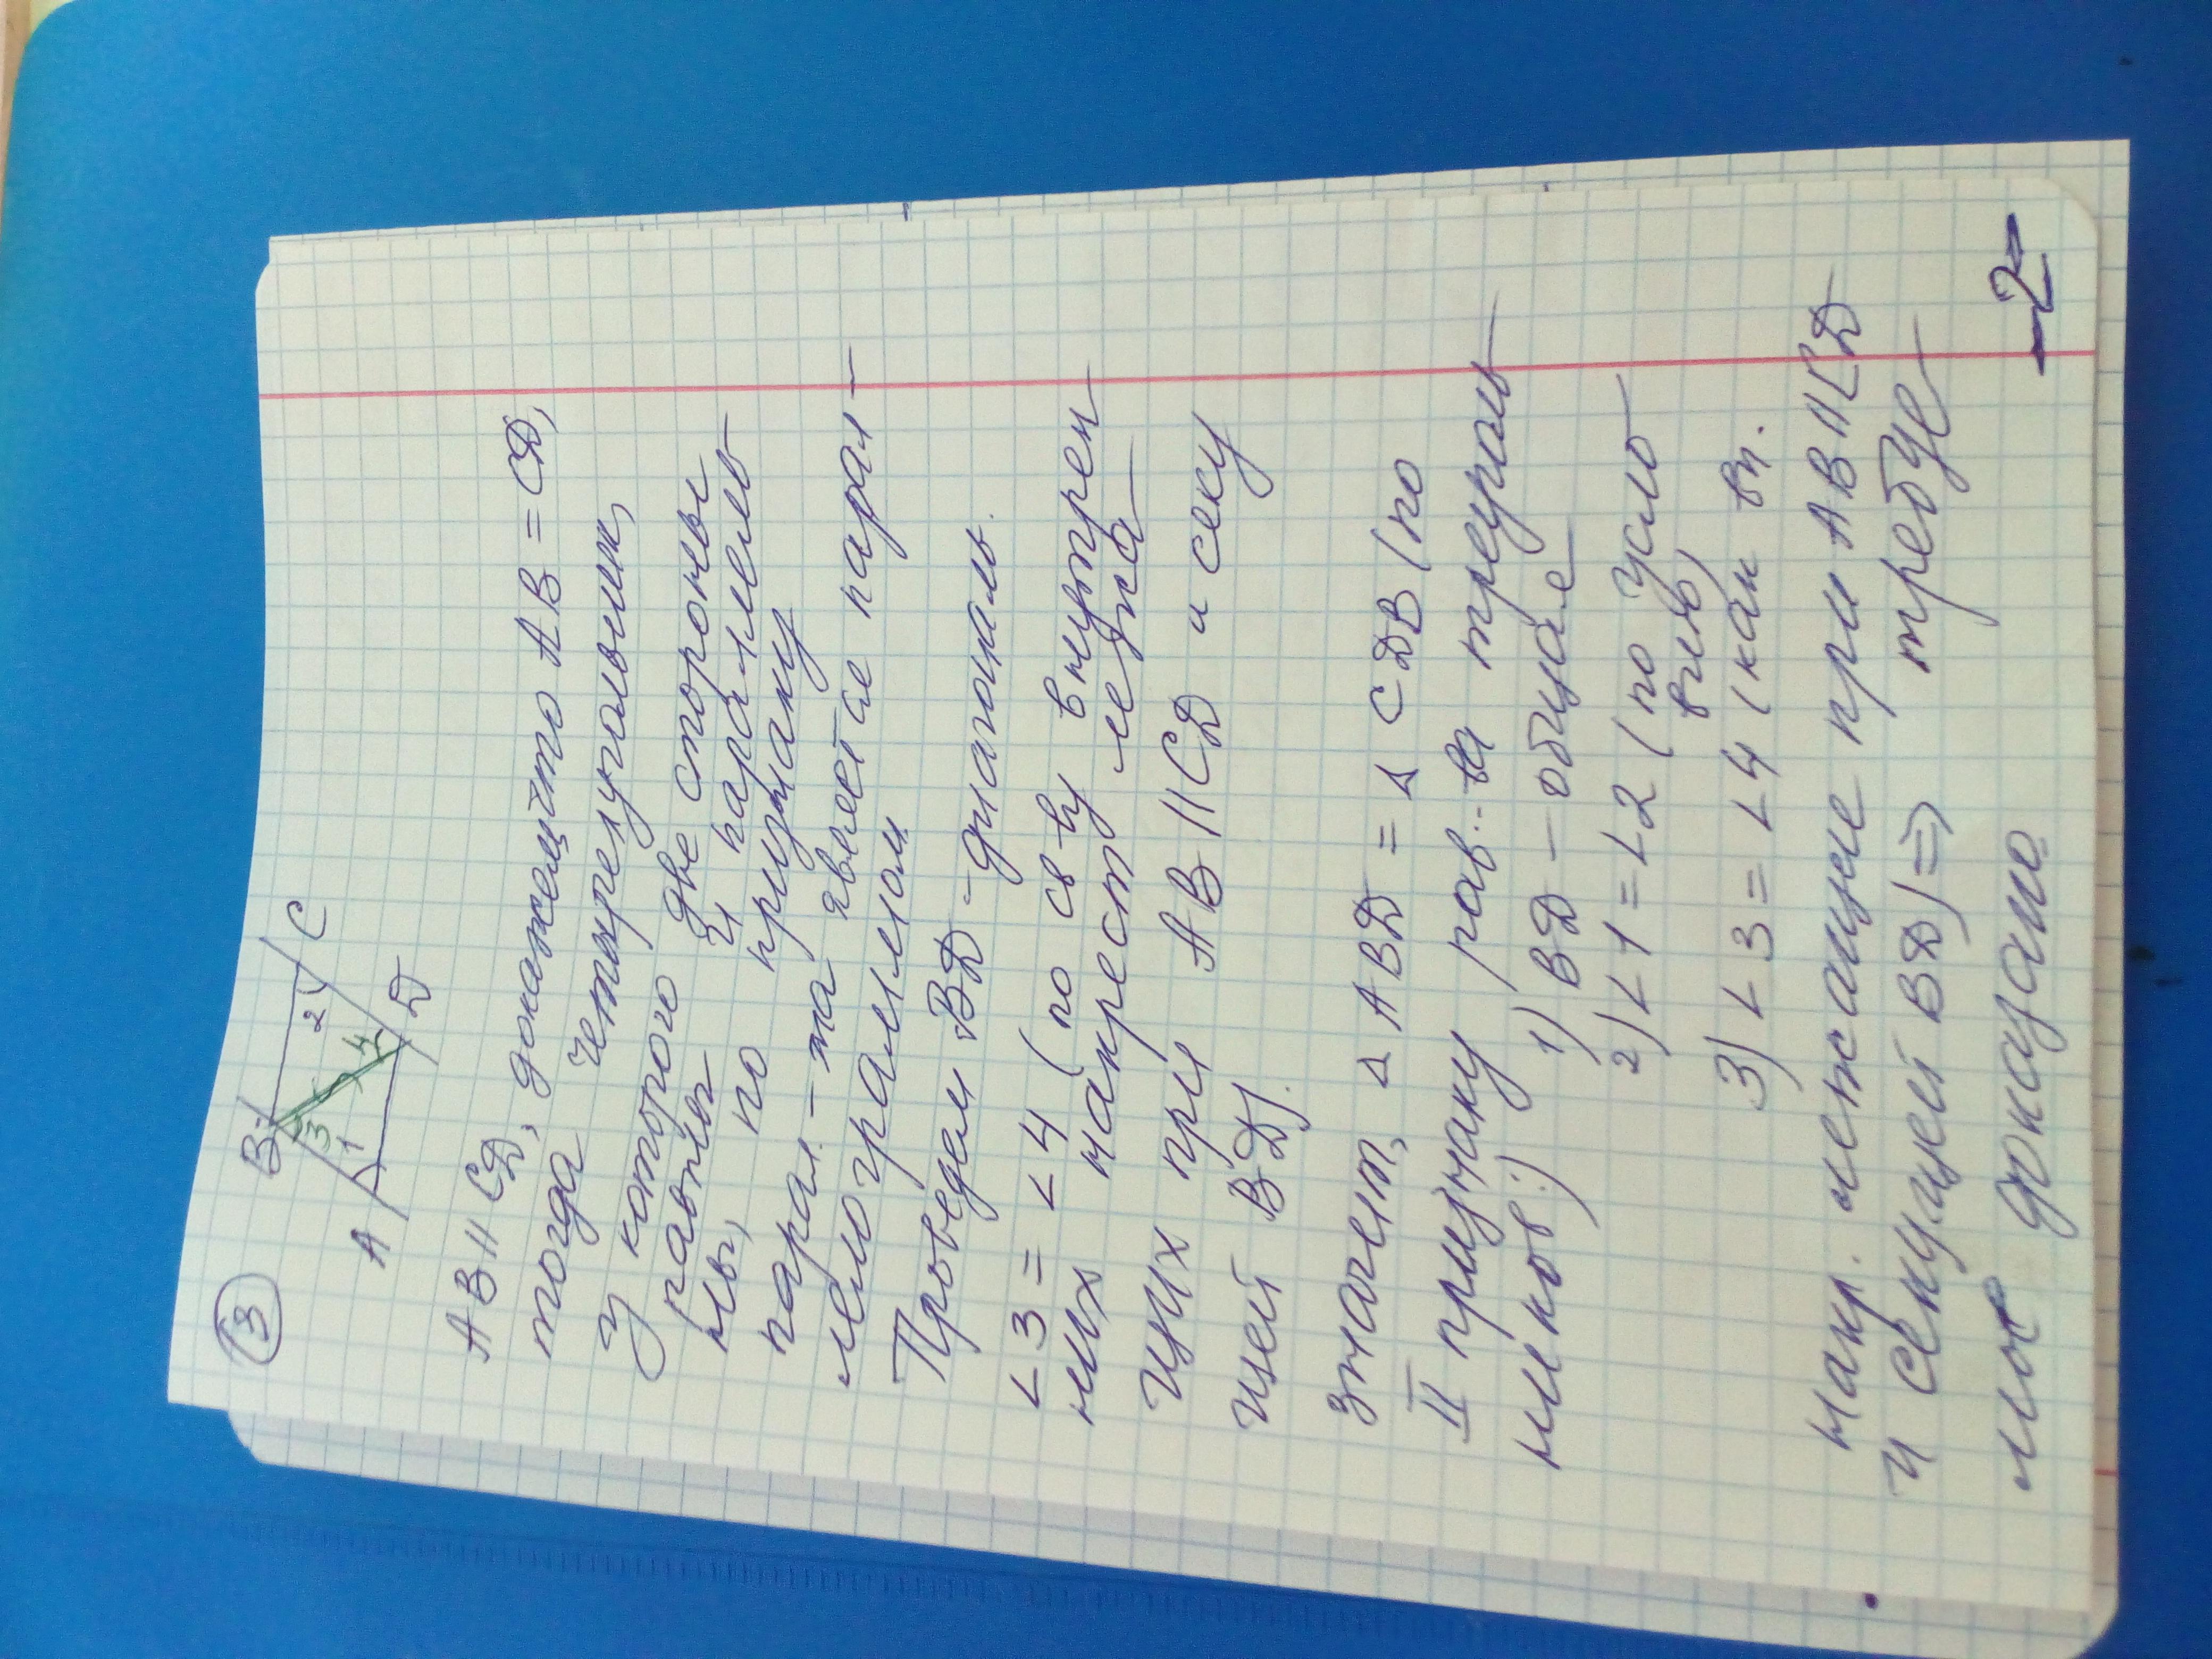 3
B
C
2
3
4
1
A
Д
AB II CД, докажем, что AB = CД,
тогда четырехугольник,
у которого две стороны
равны и параллель-
ны, по признаку
парал-ма является парал-
лелограммом
Проведем BД - диагональ.
∠3 = ∠4 (по св-ву внутрен
них накрест лежа
щих при AB II CД и секу
щей BД).
значит, ∆ ABД = ∆ CДB (по
II признаку рав-ва треуголь
ников:) 1) BД - общая
2) ∠1 = ∠2 (по усло
вию)
3) ∠3 = ∠4 (как вн.
накр. лежащие при AB II CД
и секущей BД) => требуе
мое доказано
-2-